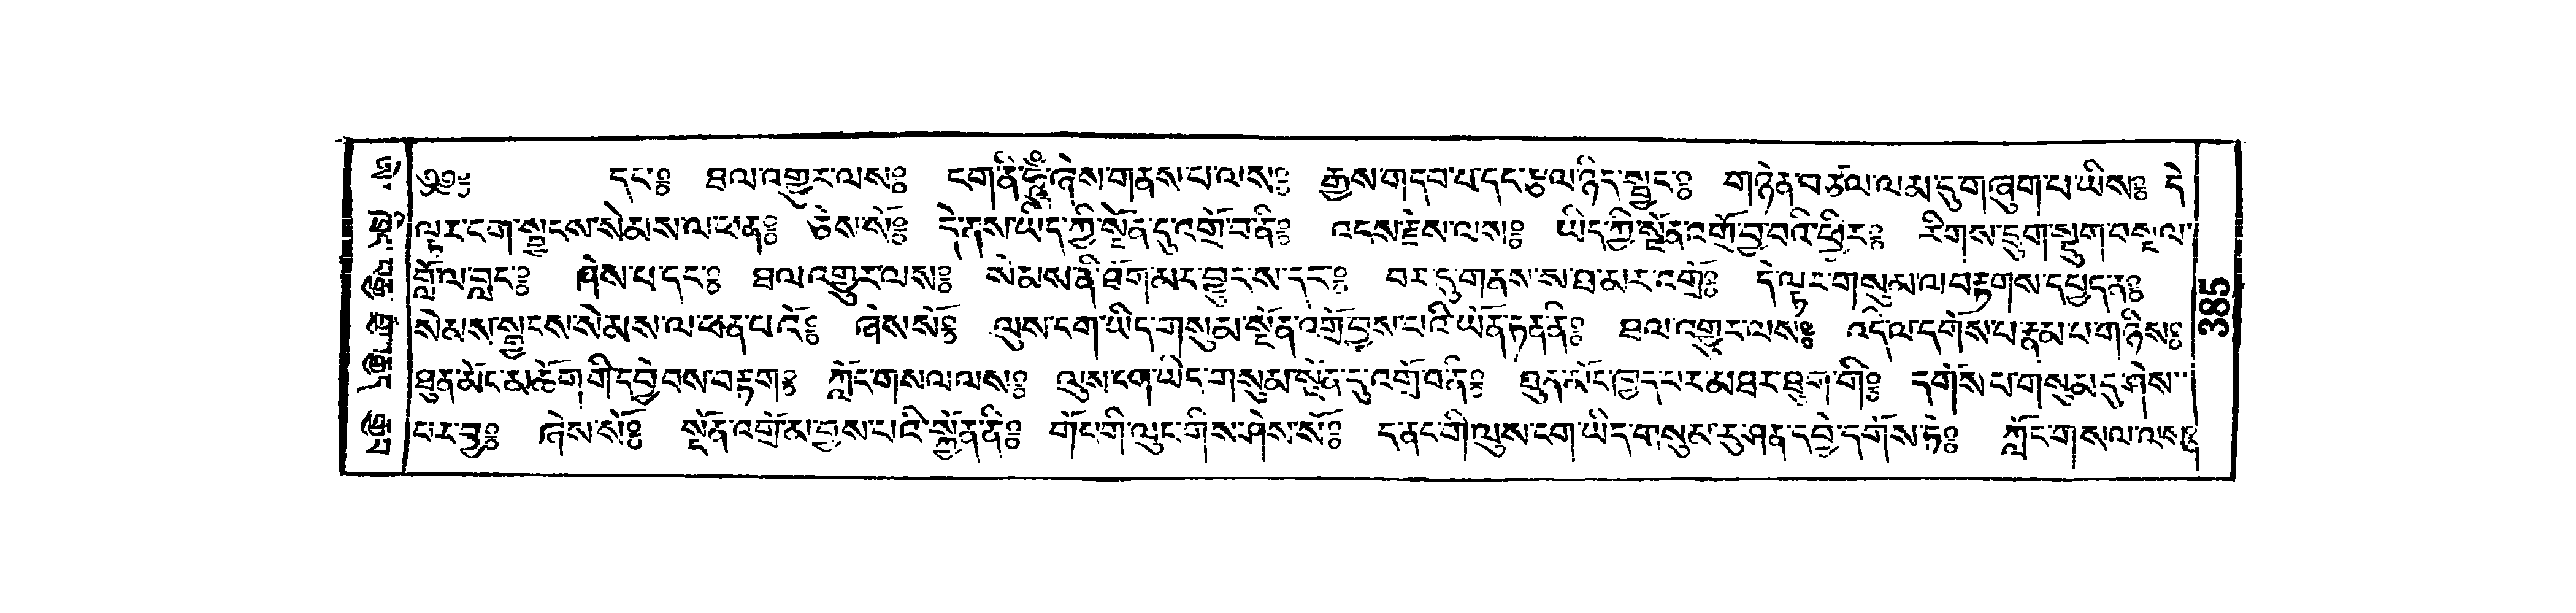 ༄༅༔ དང་༔ ཐལ་འགྱུར་ལས༔ ངག་ནི་ཧཱུྃ་ཉེས་གནས་པ་ལས༔ རྒྱས་གདབ་པ་དང་རྩལ་ཉིད་སྦྱང་༔ གཉེན་བཙལ་ལམ་དུ་གཞུག་པ་ཡིས༔ དེ་
ལྟར་ངག་སྦྱངས་སེམས་ལ་ཕན༔ ཅེས་སོ༔ དེ་ནས་ཡིད་ཀྱི་སྔོན་དུ་འགྲོ་བ་ནི༔ འངས་རྗེས་ལས༔ ཡིད་ཀྱི་སྔོན་འགྲོ་བྱ་བའི་ཕྱིར༔ རིགས་དྲུག་སྡུག་བསྔལ་
བློ་ལ་བླང་༔ ཞེས་པ་དང་༔ ཐལ་འགྱུར་ལས༔ སེམས་ནི་ཐོག་མར་བྱུང་ས་དང་༔ བར་དུ་གནས་ས་ཐ་མར་འགྲོ༔ དེ་ལྟར་གསུམ་ལ་བརྟགས་དཔྱད་ན༔
སེམས་སྦྱངས་སེམས་ལ་ཕན་པ་འོ༔ ཞེས་སོ༔ ལུས་ངག་ཡིད་གསུམ་སྔོན་འགྲོ་བྱས་པའི་ཡོན་ཏན་ནི༔ ཐལ་འགྱུར་ལས༔ འདི་ལ་དགོས་པ་རྣམ་པ་གཉིས༔
ཐུན་མོང་མཆོག་གི་དབྱེ་བས་བརྟག༔ ཀློང་གསལ་ལས༔ ལུས་ངག་ཡིད་གསུམ་སྔོན་དུ་འགྲོ་བ་ནི༔ ཐུན་མོང་ཁྱད་པར་མཐར་ཐུག་གི༔ དགོས་པ་གསུམ་དུ་ཤེས་
པར་བྱ༔ ཞེས་སོ༔ སྔོན་འགྲོ་མ་བྱས་པའི་སྐྱོན་ནི༔ གོང་གི་ལུང་གིས་ཤེས་སོ༔ ད་ནང་གི་ལུས་ངག་ཡིད་གསུམ་རུ་ཤན་དབྱེ་དགོས་ཏེ༔ ཀློང་གསལ་ལས༔
༣༧༥